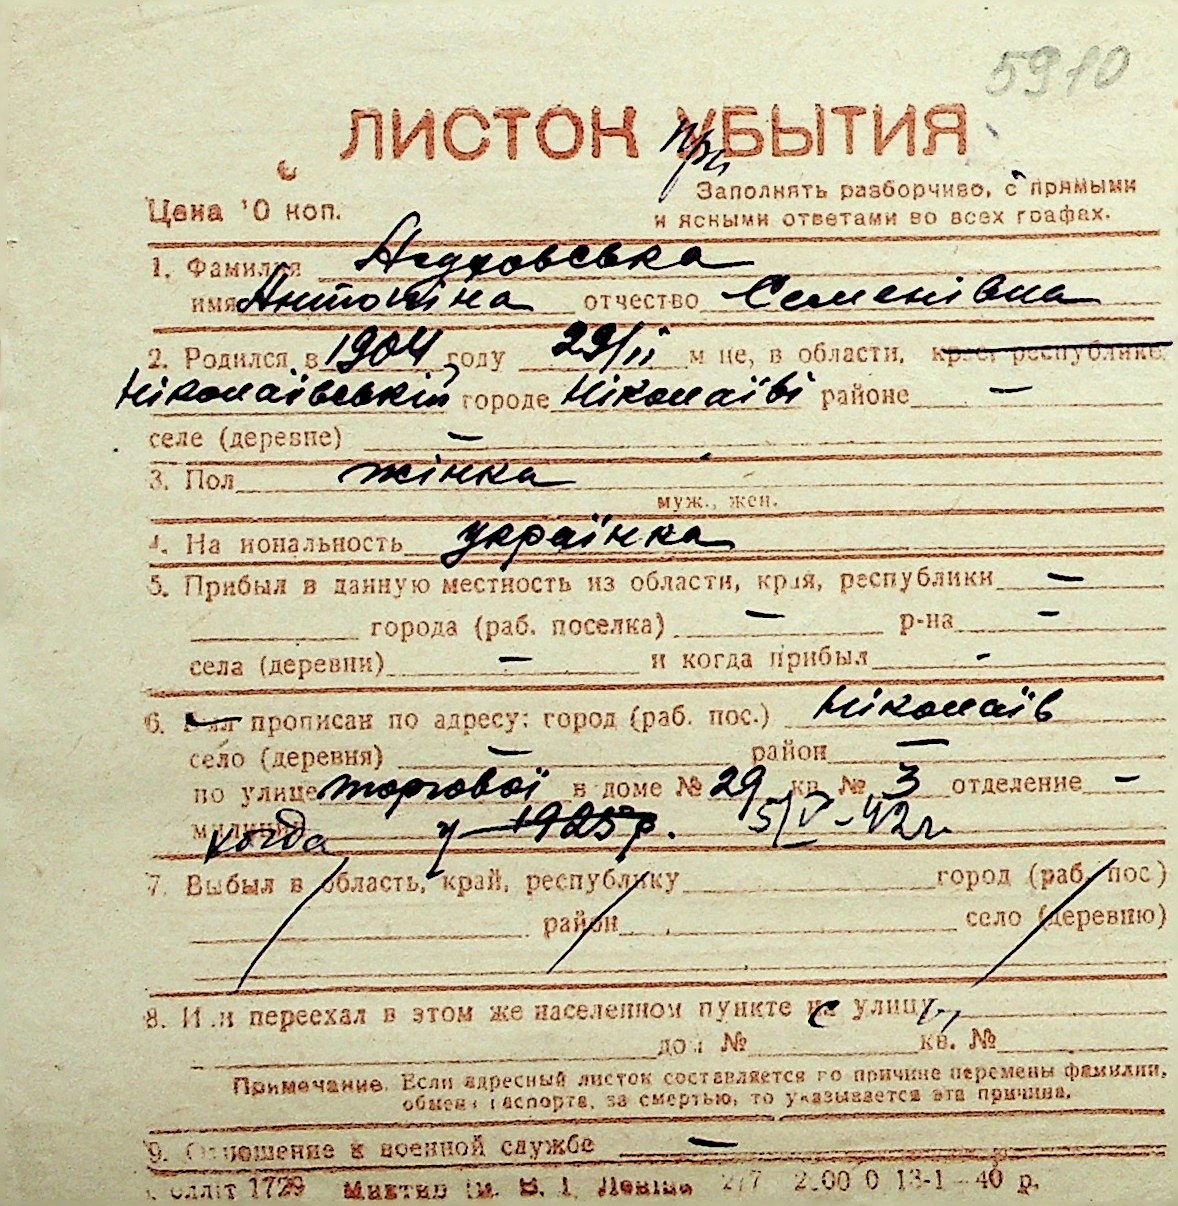 5910
ЛИСТОК УБЫТИЯ
при
Цена 10 коп.
Заполнять разборчиво, с прямыми
и ясными ответами во всех графах.
1. Фамилия
имя Антоніна отчество Семенівна
2. Родился в 1904 году 29/II м-це, в области, крае, республике
Ніколаївській городе Ніколаїві районе —
селе (деревне) —
3. Пол жінка
муж., жен.
4. Национальность українка
5. Прибыл в данную местность из области, края, республики —
города (раб. поселка) — р-на —
села (деревни) — и когда прибыл -
6. Был прописан по адресу: город (раб. пос.) Ніколаїв
село (деревня) — район —
по улице торгової в доме № 29 кв. № 3 отделение —
милиции когда у 1925 р. 5/V-42 г.
7. Выбыл в область, край, республику город (раб. пос.)
район село (деревню)
8. Или переехал в этом же населенном пункте на улицу
дом № кв. №
Примечание. Если адресный листок составляется по причине перемены фамилии,
обмена паспорта, за смертью, то указывается эта причина.
9. Отношение к военной службе —
1729 им. В. І. Леніна 13-1-40 р.